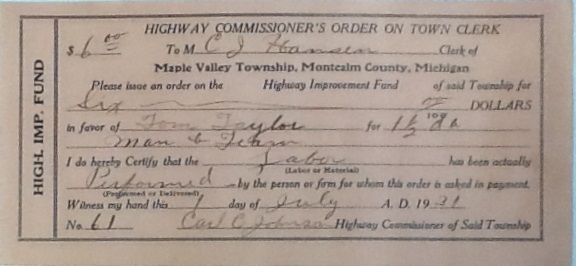 HIGHWAY COMMISSIONER'S ORDER ON TOWN CLERK
$ 6 00 To M C J Hansen Clerk of
Maple Valley Township, Montcalm County, Michigan
Please issue an order on the Highway Improvement Fund of said Township for
Six DOLLARS
100
in favor of Tom Taylor for 1 1/2 da
Man & Team
I do hereby Certify that the Labor has been actually
(Labor or Material)
Performed by the person or firm for whom this order is asked in payment.
(Performed or Delivered)
Witness my hand this 1 day of July A. D. 1931
No. 61 Carl C Johnson Highway Commissioner of Said Township
HIGH. IMP. FUND